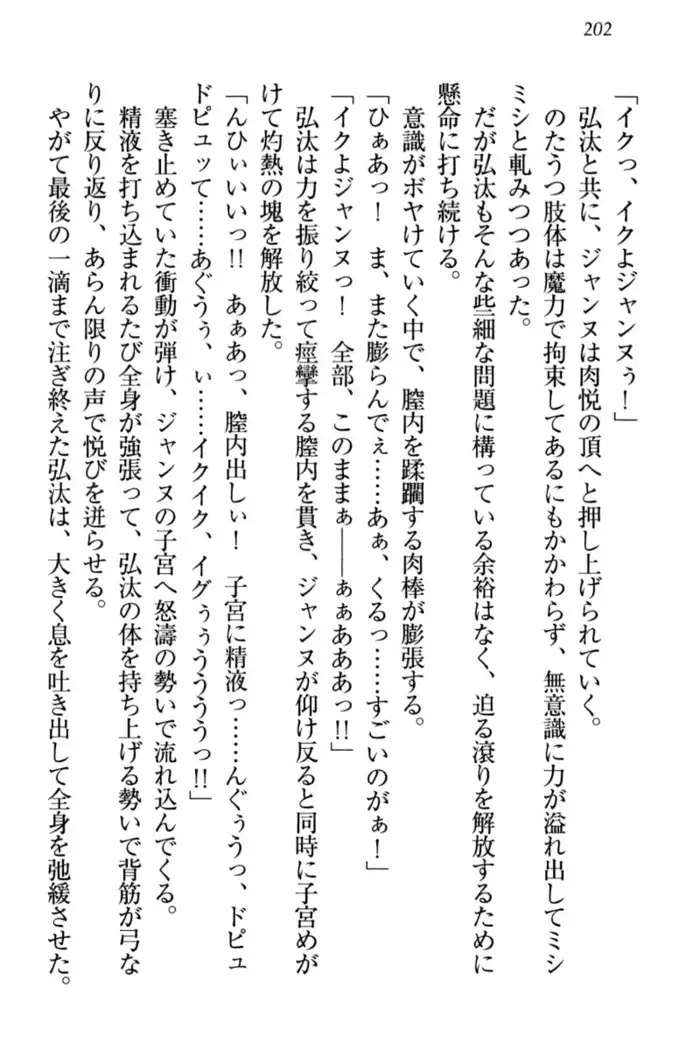 202
「イクっ、イクよジャンヌぅ!」
弘汰と共に、ジャンヌは肉悦の頂へと押し上げられていく。
のたうつ肢体は魔力で拘束してあるにもかかわらず、無意識に力が溢れ出してミシ
ミシと軋みつつあった。
だが弘汰もそんな些細な問題に構っている余裕はなく、迫る滾りを解放するために
懸命に打ち続ける。
意識がボヤけていく中で、膣内を蹂躙する肉棒が膨張する。
「ひぁあっ! ま、また膨らんでぇ……あぁ、くるっ……すごいのがぁ!」
「イクよジャンヌっ! 全部、このままぁ――ぁぁあああっ!!」
弘汰は力を振り絞って痙攣する膣内を貫き、ジャンヌが仰け反ると同時に子宮めが
けて灼熱の塊を解放した。
「んひぃいいっ!! あぁあっ、膣内出しぃ! 子宮に精液っ……んぐぅうっ、ドピュ
ドピュッて……あぐうぅ、ぃ……イクイク、イグぅぅうううっ!!」
塞き止めていた衝動が弾け、ジャンヌの子宮へ怒濤の勢いで流れ込んでくる。
精液を打ち込まれるたび全身が強張って、弘汰の体を持ち上げる勢いで背筋が弓な
りに反り返り、あらん限りの声で悦びを迸らせる。
やがて最後の一滴まで注ぎ終えた弘汰は、大きく息を吐き出して全身を弛緩させた。